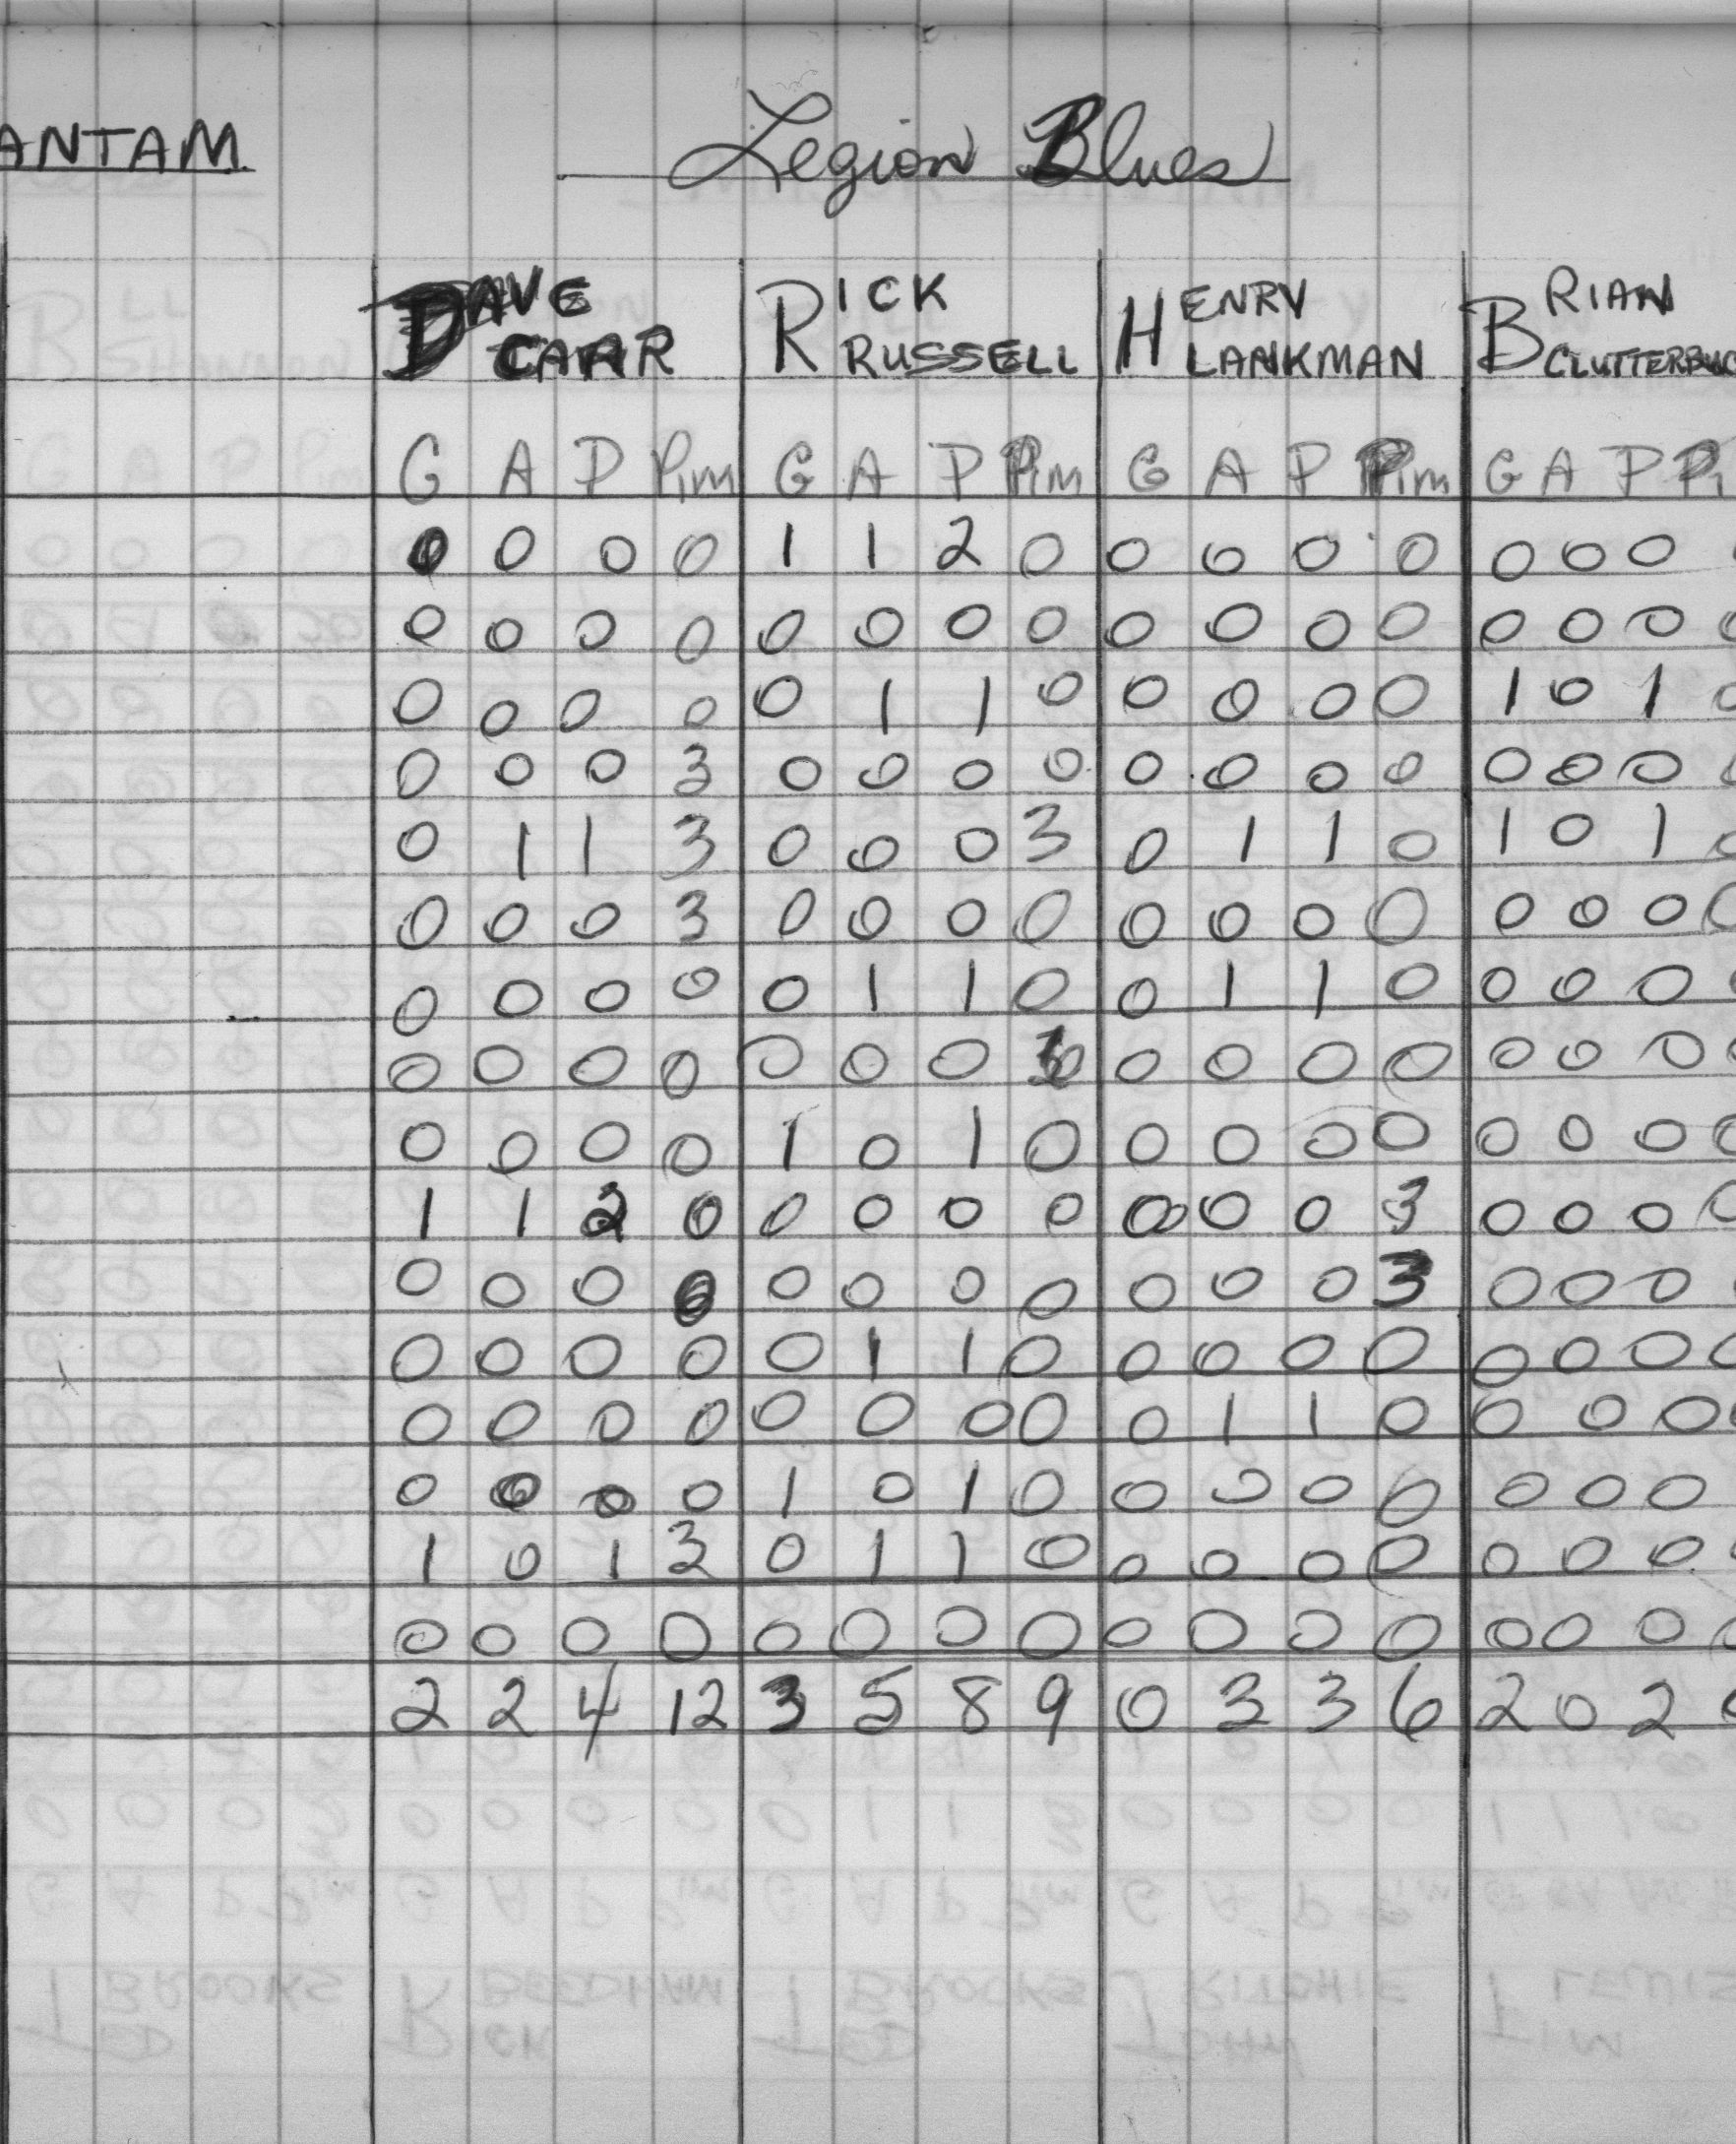 ANTAM. Legion Blues
DAVE CARR RICK RUSSELL HENRY LANKMAN BRIAN CLUTTERBUC
G A P Pim G A P Pim G A P Pim G A P Pi
0 0 0 0 1 1 2 0 0 0 0 0 0 0 0
0 0 0 0 0 0 0 0 0 0 0 0 0 0 0 0
0 0 0 0 0 1 1 0 0 0 0 0 1 0 1 0
0 0 0 3 0 0 0 0 0 0 0 0 0 0 0 0
0 1 1 3 0 0 0 3 0 1 1 0 1 0 1 0
0 0 0 3 0 0 0 0 0 0 0 0 0 0 0 0
0 0 0 0 0 1 1 0 0 1 1 0 0 0 0 0
0 0 0 0 0 0 0 0 0 0 0 0 0 0 0
0 0 0 0 1 0 1 0 0 0 0 0 0 0 0 0
1 1 2 0 0 0 0 0 0 0 0 3 0 0 0 0
0 0 0 0 0 0 0 0 0 0 0 3 0 0 0
0 0 0 0 0 1 1 0 0 0 0 0 0 0 0 0
0 0 0 0 0 0 0 0 0 1 1 0 0 0 0 0
0 0 0 0 1 0 1 0 0 0 0 0 0 0 0
1 0 1 3 0 1 1 0 0 0 0 0 0 0 0 0
0 0 0 0 0 0 0 0 0 0 0 0 0 0 0 0
2 2 4 12 3 5 8 9 0 3 3 6 2 0 2